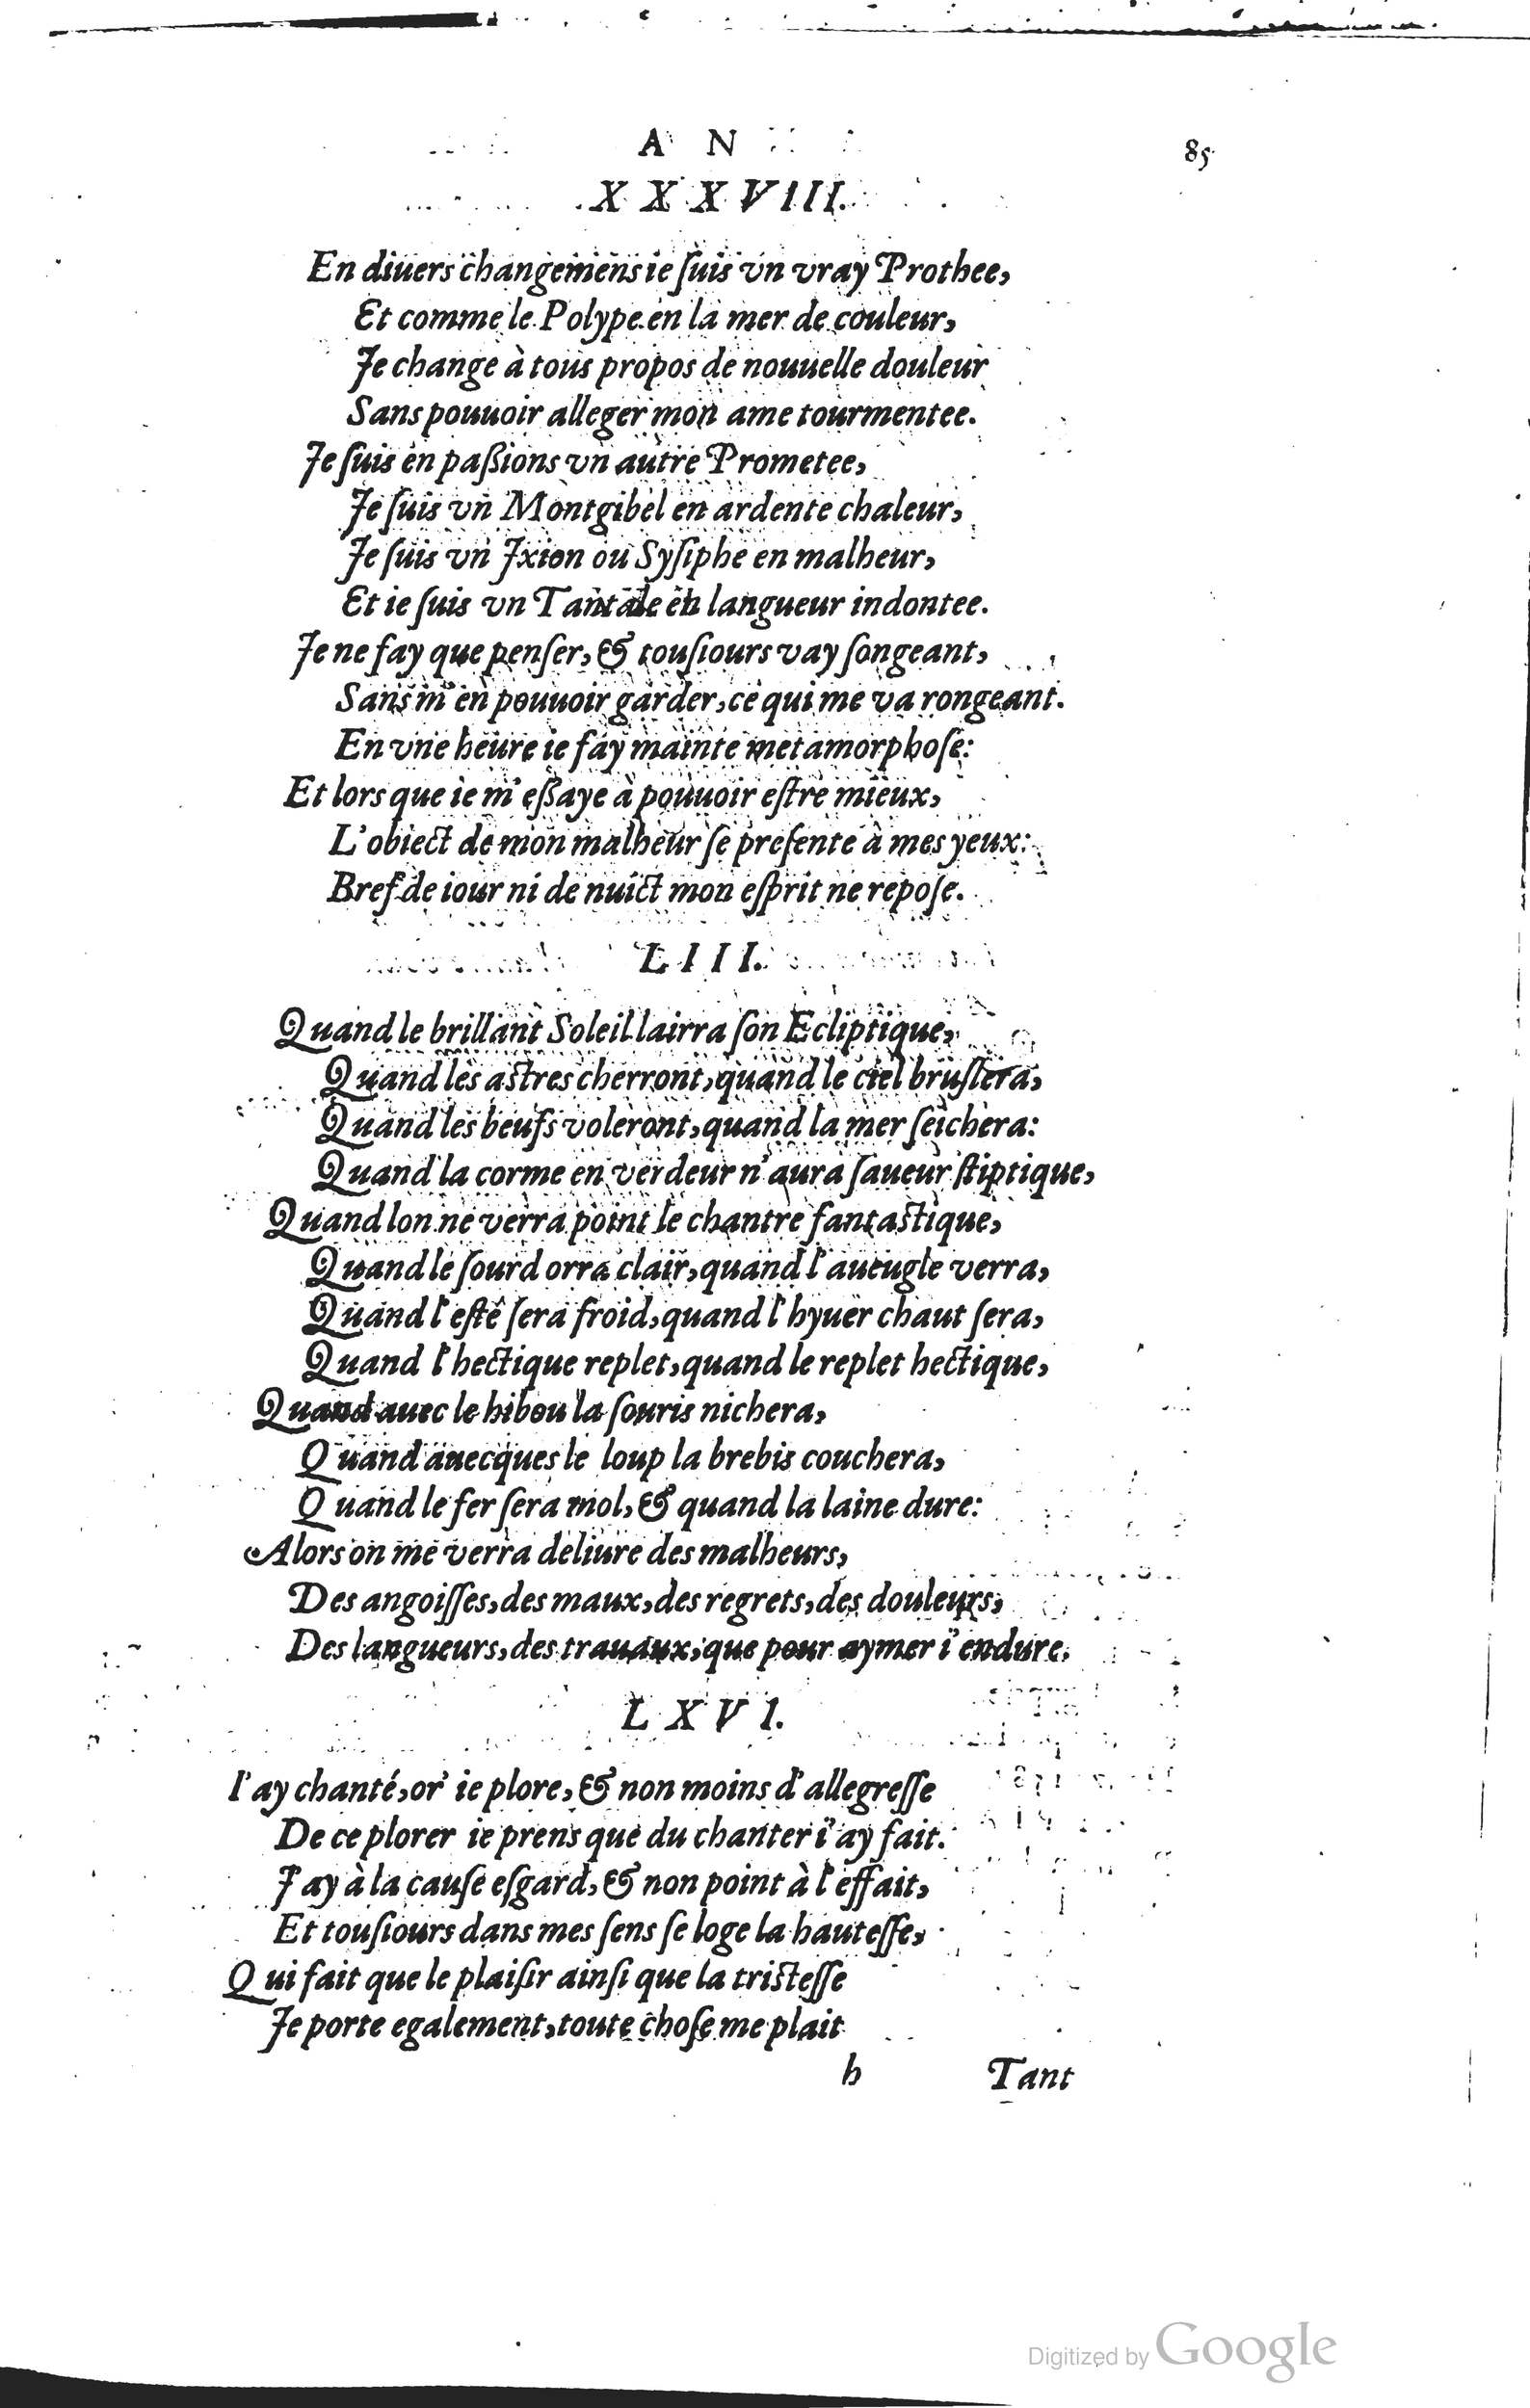 A N
85
XXXVIII.
En diuers changemens ie ſuis vn vray Prothee,
Et comme le Polype en la mer de couleur,
Je change à tous propos de nouuelle douleur
Sans pouuoir alleger mon ame tourmentee.
Je ſuis en paßions vn autre Prometee,
Je ſuis vn Montgibel en ardente chaleur,
Je ſuis vn Jxion ou Syſiphe en malheur,
Et ie ſuis vn Tantale en langueur indontee.
Je ne fay que penſer, & touſiours vay ſongeant,
Sans m'en pouuoir garder, ce qui me va rongeant.
En vne heure ie fay mainte metamorphoſe:
Et lors que ie m'eßaye à pouuoir eſtre mieux,
L'obiect de mon malheur ſe preſente à mes yeux:
Bref de iour ni de nuict mon eſprit ne repoſe.
LIII.
Quand le brillant Soleil lairra ſon Ecliptique,
Quand les aſtres cherront, quand le ciel bruſlera,
Quand les beufs voleront, quand la mer ſeichera:
Quand la corme en verdeur n'aura ſaueur ſtiptique,
Quand lon ne verra point le chantre fantaſtique,
Quand le ſourd orra clair, quand l'aueugle verra,
Quand l'eſté ſera froid, quand l'hyuer chaut ſera,
Quand l'hectique replet, quand le replet hectique,
Quand auec le hibou la ſouris nichera,
Quand auecques le loup la brebis couchera,
Quand le fer ſera mol, & quand la laine dure:
Alors on me verra deliure des malheurs,
Des angoiſſes, des maux, des regrets, des douleurs,
Des langueurs, des trauaux, que pour aymer i'endure.
LXVI.
I'ay chanté, or' ie plore, & non moins d'allegreſſe
De ce plorer ie prens que du chanter i'ay fait.
J'ay à la cauſe eſgard, & non point à l'effait,
Et touſiours dans mes ſens ſe loge la hauteſſe,
Qui fait que le plaiſir ainſi que la triſteſſe
Je porte egalement, toute choſe me plait
h
Tant
Digitized by Google